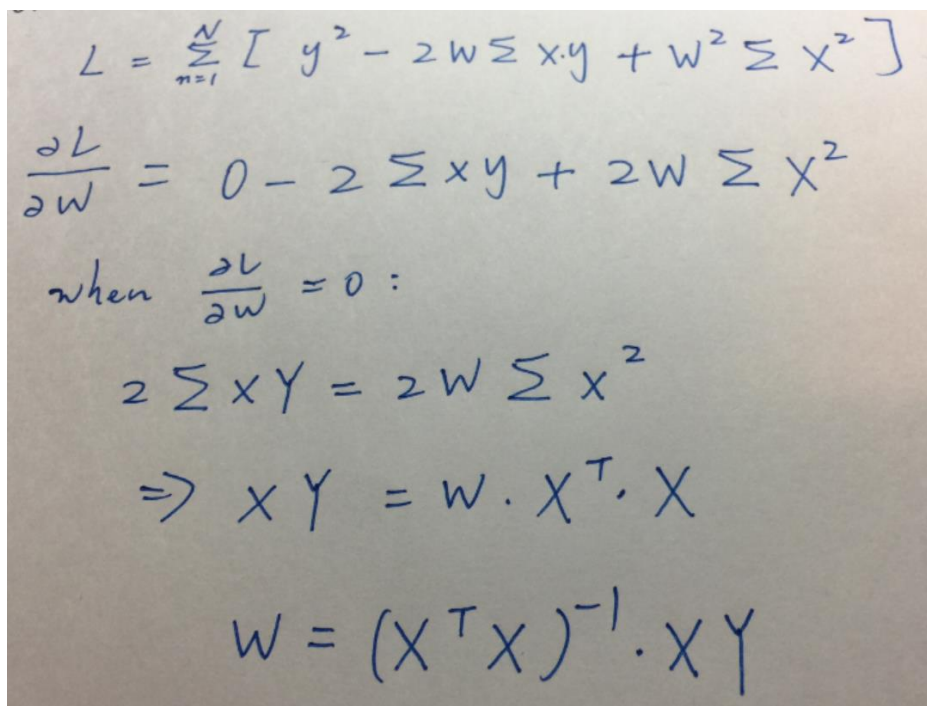 L = Σ_{n=1}^{N} [ y² - 2WΣ x·y + W² Σ X² ]
∂L/∂W = 0 - 2 Σ x y + 2W Σ X²
when ∂L/∂W = 0 :
2 Σ x Y = 2 W Σ x²
=> X Y = W · X^T · X
W = (X^T X)^{-1} · X Y